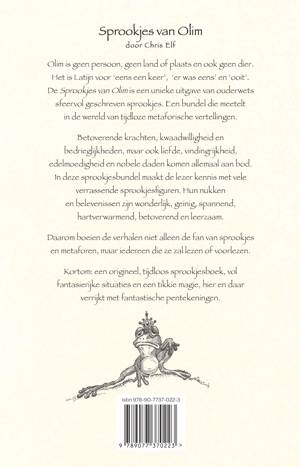 Sprookjes van Olim
door Chris Elf
Olim is geen persoon, geen land of plaats en ook geen dier.
Het is Latijn voor 'eens een keer', 'er was eens' en 'ooit'.
De Sprookjes van Olim is een unieke uitgave van ouderwets
sfeervol geschreven sprookjes. Een bundel die meetelt
in de wereld van tijdloze metaforische vertellingen.
Betoverende krachten, kwaadwilligheid en
bedrieglijkheden, maar ook liefde, vindingrijkheid,
edelmoedigheid en nobele daden komen allemaal aan bod.
In deze sprookjesbundel maakt de lezer kennis met vele
verrassende sprookjesfiguren. Hun nukken
en belevenissen zijn wonderlijk, geinig, spannend,
hartverwarmend, betoverend en leerzaam.
Daarom boeien de verhalen niet alleen de fan van sprookjes
en metaforen, maar iedereen die ze zal lezen of voorlezen.
Kortom: een origineel, tijdloos sprookjesboek, vol
fantasierijke situaties en een tikkie magie, hier en daar
verrijkt met fantastische pentekeningen.
isbn 978-90-7737-022-3
9 789077 370223 >